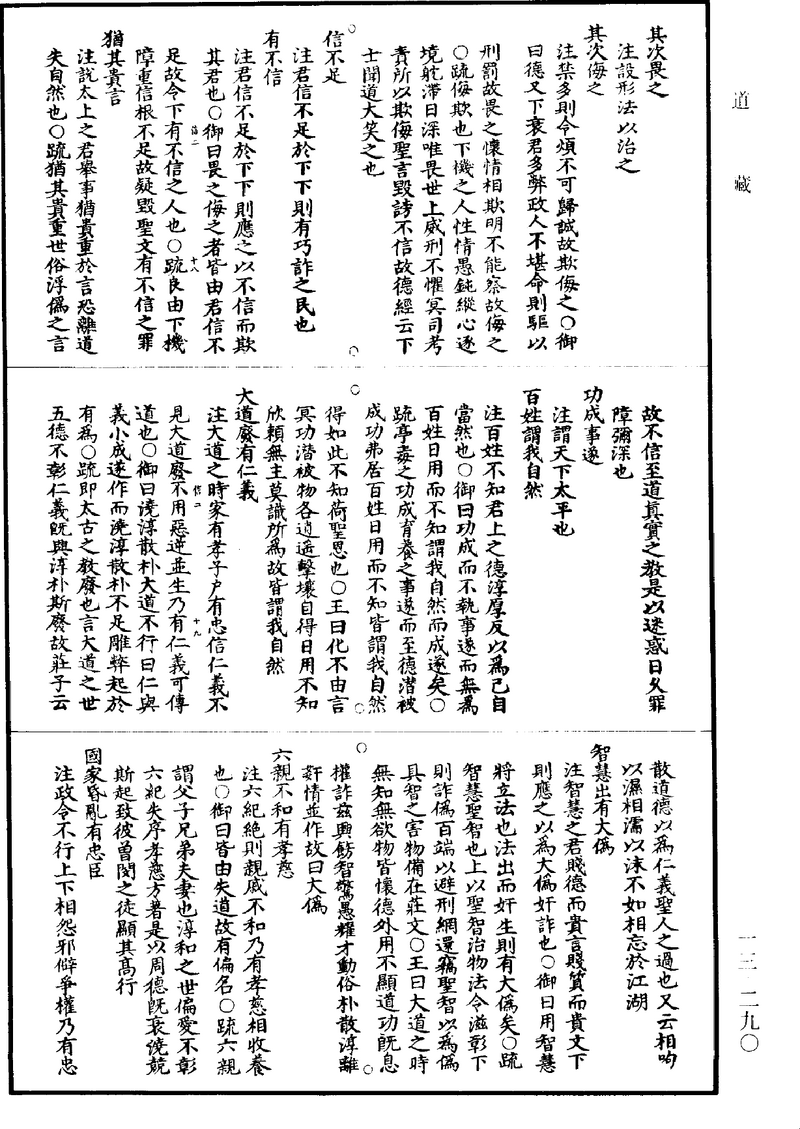 道藏
其次畏之
注設形法以治之
其次侮之
注禁多則令煩不可歸誠故欺侮之○御
曰德又下衰君多弊政人不堪命則驅以
刑罰故畏之懷情相欺明不能察故侮之
○疏侮欺也下機之人性情愚鈍縱心逐
境躭滯日深唯畏世上威刑不懼冥司考
責所以欺侮聖言毀謗不信故德經云下
士聞道大笑之也
信不足
注君信不足於下下則有巧詐之民也
有不信
注君信不足於下下則應之以不信而欺
其君也○御曰畏之侮之者皆由君信不
足故令下有不信之人也○疏良由下機
障重信根不足故疑毀聖文有不信之罪
猶其貴言
注說太上之君舉事猶貴重於言恐離道
失自然也○疏猶其貴重世俗浮偽之言
故不信至道真實之教是以迷惑日久罪
障彌深也
功成事遂
注謂天下太平也
百姓謂我自然
注百姓不知君上之德淳厚反以為己自
當然也○御曰功成而不執事遂而無為
百姓日用而不知謂我自然而成遂矣○
疏亭毒之功成育養之事遂而至德潛被
成功弗居百姓日用而不知皆謂我自然
得如此不知荷聖恩也○王曰化不由言
冥功潛被物各逍遥擊壤自得日用不知
欣賴無主莫識所為故皆謂我自然
大道廢有仁義
注大道之時家有孝子戶有忠信仁義不
見大道廢不用惡逆並生乃有仁義可傳
道也○御曰澆淳散朴大道不行曰仁與
義小成遂作而澆淳散朴不足雕弊起於
有為○疏即太古之教廢也言大道之世
五德不彰仁義既興淳朴斯廢故莊子云
散道德以為仁義聖人之過也又云相呴
以濕相濡以沫不如相忘於江湖
智慧出有大偽
注智慧之君賤德而貴言賤質而貴文下
則應之以為大偽奸詐也○御曰用智慧
將立法也法出而奸生則有大偽矣○疏
智慧聖智也上以聖智治物法令滋彰下
則詐偽百端以避刑網還竊聖智以為偽
具智之害物備在莊文○王曰大道之時
無知無欲物皆懷德外用不顯道功既息
權詐茲興飭智驚愚耀才動俗朴散淳離
奸情並作故曰大偽
六親不和有孝慈
注六紀絕則親戚不和乃有孝慈相收養
也○御曰皆由失道故有偏名○疏六親
謂父子兄弟夫妻也淳和之世偏愛不彰
六紀失序孝慈方著是以周德既衰澆競
斯起致彼曾閔之徒顯其高行
國家昏亂有忠臣
注政令不行上下相怨邪僻爭權乃有忠
一三·二九〇